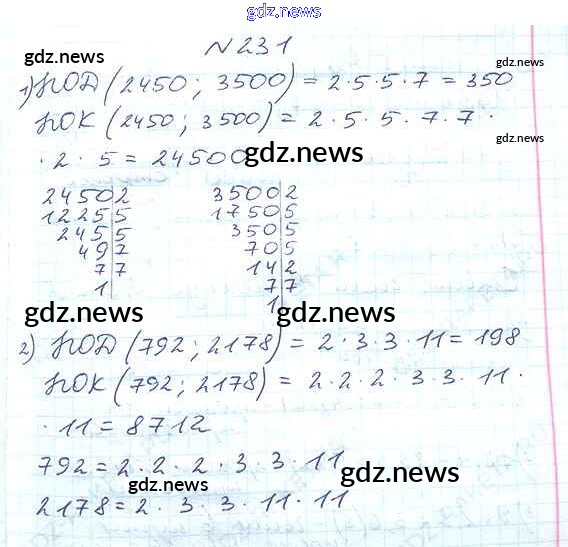 gdz.news
№231
gdz.news
1) НОД (2450; 3500) = 2·5·5·7 = 350
gdz.news
НОК (2450; 3500) = 2·5·5·7·7·
gdz.news
·2·5 = 24500
gdz.news
2450|2 3500|2
1225|5 1750|5
245|5 350|5
49|7 70|5
7|7 14|2
1| 7|7
1|
gdz.news gdz.news
2) НОД (792; 2178) = 2·3·3·11 = 198
НОК (792; 2178) = 2·2·2·3·3·11·
·11 = 8712
792 = 2·2·2·3·3·11
gdz.news gdz.news
2178 = 2·3·3·11·11